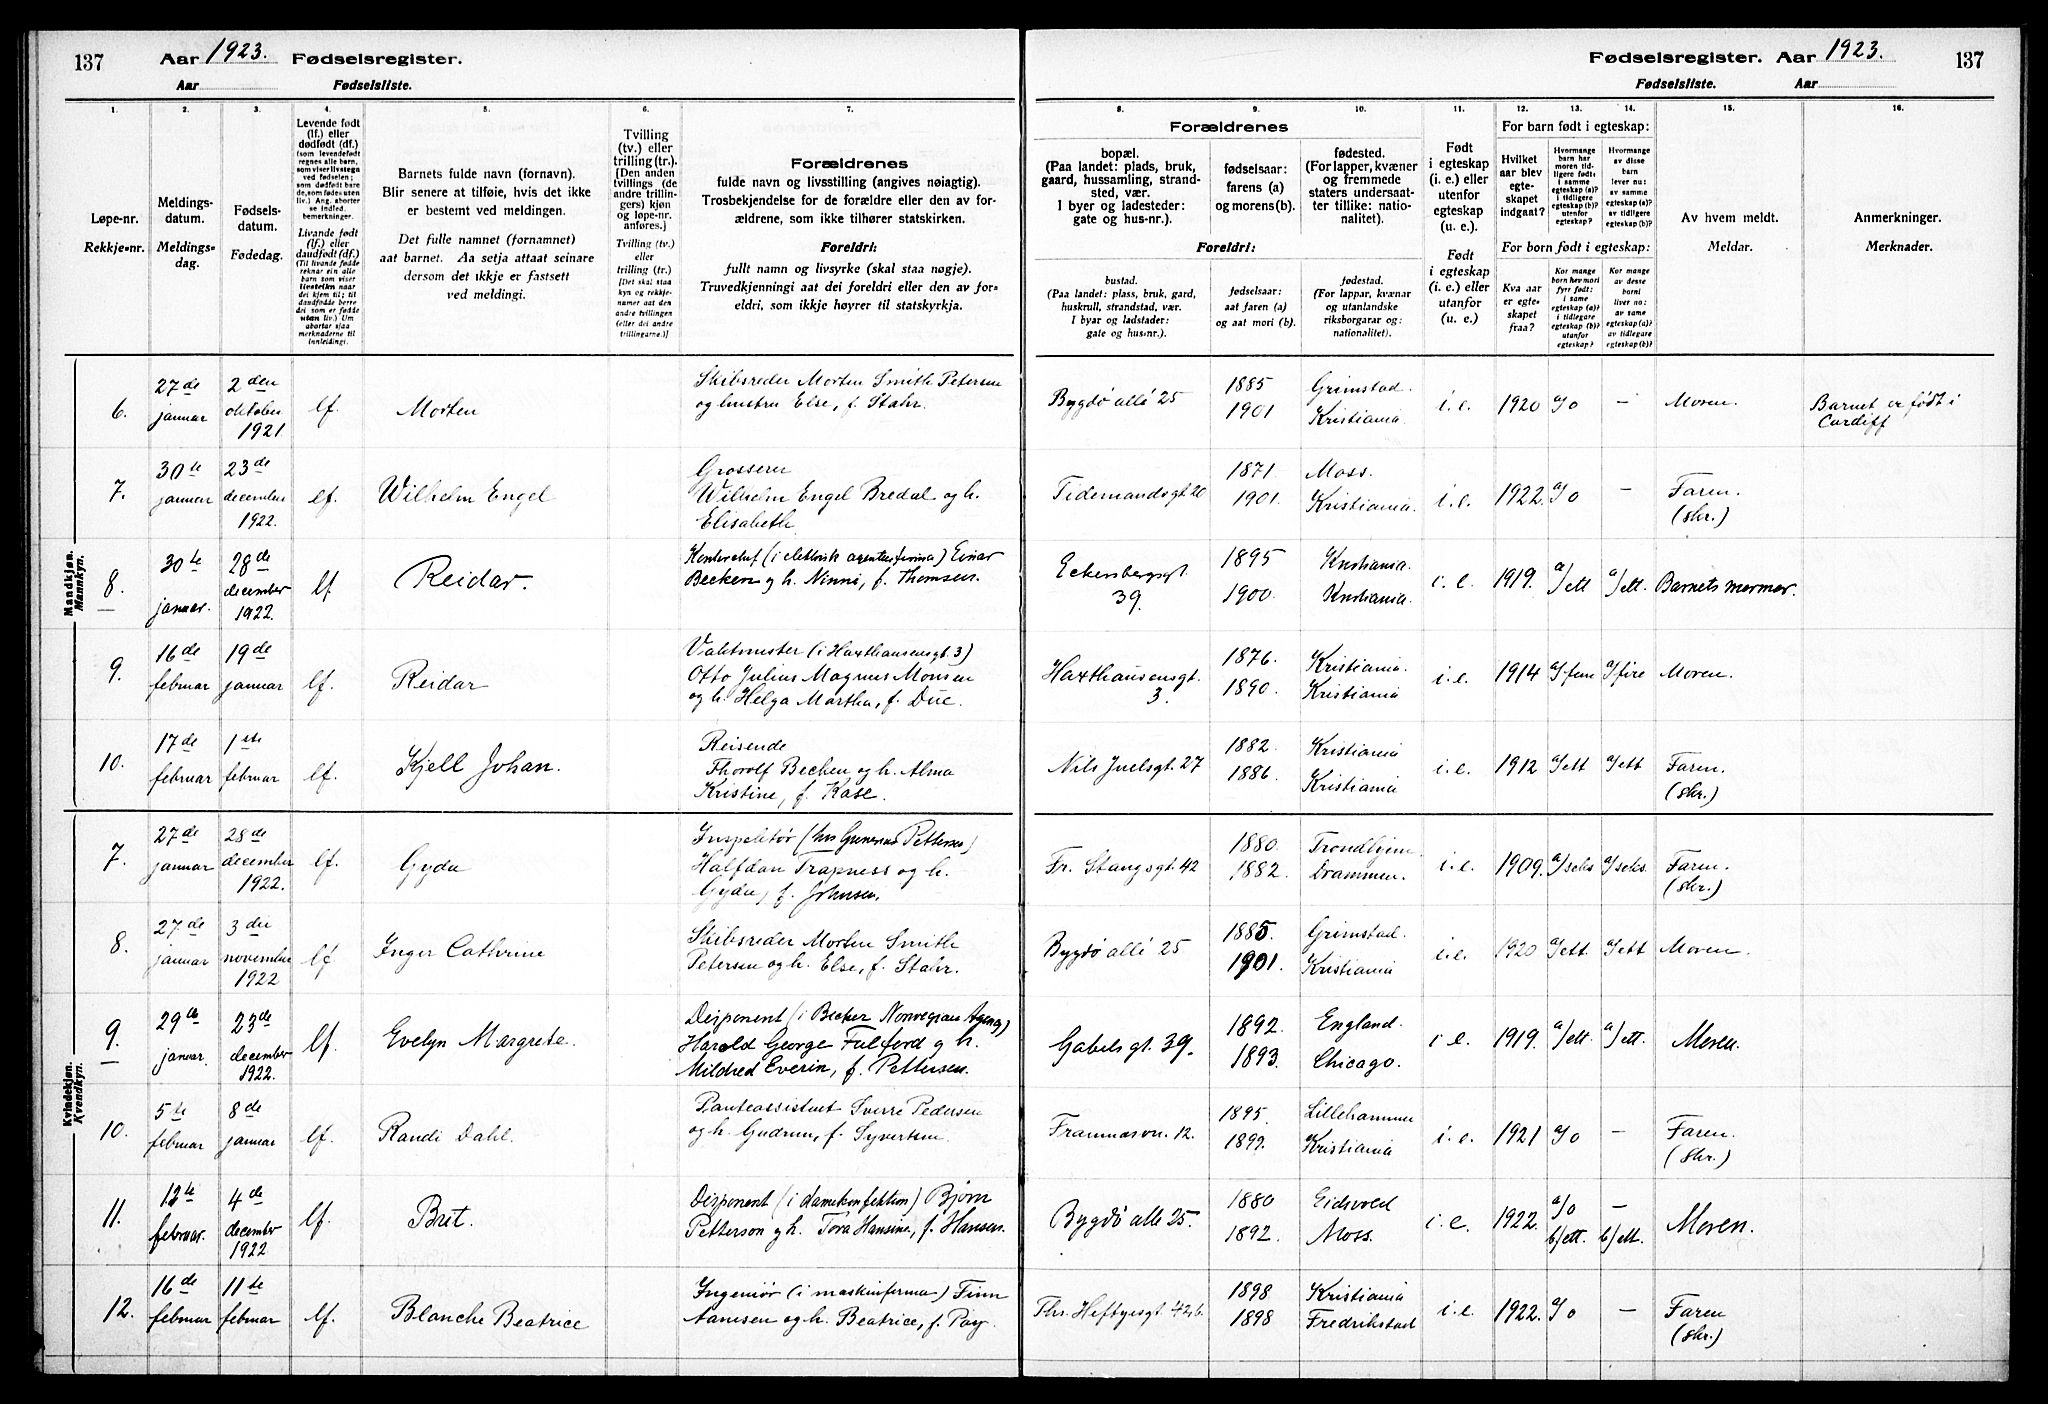 137 Aar 1923. Fødselsregister.
Aar Fødselsliste.
Fødselsregister. Aar 1923. 137
Fødselsliste. Aar
1. 2. 3. 4. 5. 6. 7. 8. 9. 10. 11. 12. 13. 14. 15. 16.
Løpe-nr.
Rekkje-nr.
Meldings-
datum.
Meldings-
dag.
Fødsels-
datum.
Fødedag.
Levende født
(lf.) eller
dødfødt (df.)
(som levendefødt
regnes alle barn,
som viser livstegn
ved fødselen;
som dødfødt bare
de, som fødes uten
liv.) Ang. aborter
se indled.
bemerkninger.
Livande fødd
(lf.) eller
daudfødt (df.)
(Til livande fødde
reknar ein alle
barn som viser
livsteikn naar
dei kjem til; til
daudfødde berre
dei som er fødde
utan liv.) Um
abortar sjaa
merknaderne til
innleidingi.
Barnets fulde navn (fornavn).
Blir senere at tilføie, hvis det ikke
er bestemt ved meldingen.
Det fulle namnet (fornamnet)
aat barnet. Aa setja attaat seinare
dersom det ikkje er fastsett
ved meldingi.
Tvilling
(tv.) eller
trilling (tr.).
[Den anden
tvillings (de
andre trillin-
gers) kjøn
og løpe-nr.
anføres.]
Tvilling (tv.)
eller
trilling (tr.)
[Det skal staa
kyn og rekkje-
numer aat den
andre tvillingen
(eller dei andre
trillingarne.)]
Forældrenes
fulde navn og livsstilling (angives nøiagtig).
Trosbekjendelse for de forældre eller den av for-
ældrene, som ikke tilhører statskirken.
Foreldri:
fullt namn og livsyrke (skal staa nøgje).
Truvedkjenningi aat dei foreldri eller den av for-
eldri, som ikkje høyrer til statskyrkja.
Forældrenes
bopæl.
(Paa landet: plads, bruk,
gaard, hussamling, strand-
sted, vær.
I byer og ladesteder:
gate og hus-nr.).
fødselsaar:
farens (a)
og morens (b).
fødested.
(For lapper, kvæner
og fremmede
staters undersaat-
ter tillike: natio-
nalitet).
Foreldri:
bustad.
(Paa landet: plass, bruk, gard,
huskrull, strandstad, vær.
I byar og ladstader:
gate og hus-nr.).
fødselsaar:
aat faren (a)
og aat mori (b).
fødestad.
(For lappar, kvænar
og utanlandske
riksborgarar og:
nationalitet).
Født
i egteskap
(i. e.) eller
utenfor
egteskap
(u. e.).
Født
i egteskap
(i. e.) eller
utanfor
(u. e.).
For barn født i egteskap:
Hvilket
aar blev
egte-
skapet
indgaat?
Hvormange
barn har
moren tid-
ligere født:
i samme
egteskap (a)?
i tidligere
egteskap (b)?
utenfor
egteskap?
Hvormange
av disse
barn
lever nu:
av samme
egteskap (a)?
av tidligere
egteskap (b)?
For born født i egteskap:
Kva aar
er egte-
skapet
fraa?
Kor mange
born hev mori
fyrr født:
i same
egteskap (a)?
i tidlegare
egteskap (b)?
utanfor
egteskap?
Kor mange
av desse
borni
liver no:
av same
egteskap (a)?
av tidlegare
egteskap (b)?
Av hvem meldt.
Meldar.
Anmerkninger.
Merknader.
Mandkjøn.
Mannkyn.
6. 27de januar 2den oktober 1921 lf. Morten
Skibsreder Morten Smith Petersen
og hustru Else, f. Stahr.
Bygdø allé 25 1885 1901 Grimstad. Kristiania. i. e. 1920 a/o — Moren. Barnet er født i
Cardiff
7. 30te januar 23de december 1922. lf. Wilhelm Engel
Grosserer
Wilhelm Engel Bredal og h.
Elisabeth
Tidemandsgt. 20 1871. 1901. Moss. Kristiania. i. e. 1922. a/o — Faren.
(skr.)
8. 30te januar. 28de december 1922. lf Reidar.
Einar
Becken og h. Ninni, f. Thomsen.
Eckersbergsgt.
39. 1895 1900. Kristiania. Kristiania. i. e. 1919. a/ett a/ett. Barnets mormor.
9. 16de februar 19de januar lf. Reidar
Vaktmester (i Haxthausensgt. 3)
Otto Julius Magnus Monsen
og h. Helga Martha, f. Due.
Haxthausensgt.
3. 1876. 1890. Kristiania. Kristiania i. e. 1914 a/fem a/fire Moren.
10. 17de februar 1ste februar lf. Kjell Johan.
Reisende
Thorolf Becken og h. Alma
Kristine, f. Kase.
Nils Juelsgt. 27 1882. 1886. Kristiania Kristiania i. e. 1912 a/ett a/ett Faren.
(skr.)
Kvindekjøn.
Kvendkyn.
7. 27de januar 28de december 1922. lf. Gyda
Inspektør (hos Gunerius Pettersen)
Halfdan Trapness og h.
Gyda, f. Johnsen.
Fr. Stangsgt. 42 1880. 1882. Trondhjem. Drammen. i. e. 1909. a/seks a/seks. Faren.
(skr.)
8. 27de januar 3die november 1922 lf Inger Cathrine
Skibsreder Morten Smith
Petersen og h. Else, f. Stahr.
Bygdø allé 25 1885. 1901. Grimstad. Kristiania i. e. 1920 a/ett. a/ett Moren.
9. 29de januar. 23de december 1922. lf. Evelyn Margrete.
Disponent (i Becker Norwegian Agency)
Harold George Fulford og h.
Mildred Everin, f. Pettersen.
Gabels gt. 39. 1892. 1893. England. Chicago. i e. 1919. a/ett. a/ett. Moren.
10. 5te februar 8de januar lf. Randi Dahl.
Panteassistent Sverre Pedersen
og h. Gudrun, f. Syvertsen.
Framnæsvn. 12. 1895. 1892. Lillehammer Kristiania i. e. 1921 a/o — Faren.
(skr.)
11. 12te februar. 4de december 1922 lf. Brit.
Disponent (i damekonfektion) Bjørn
Petterson og h. Tora Hansine, f. Hansen.
Bygdø alle 25. 1880 1892. Eidsvold Moss. i. e. 1922. a/o
b/ett. —
b/ett. Moren.
12. 16de februar 11te februar lf. Blanche Beatrice
Ingeniør (i maskinfirma) Finn
Aamesen og h. Beatrice, f. Pay.
Ths. Heftyesgt. 42b. 1898 1898 Kristiania Fredrikstad i. e. 1922. a/o — Faren
(skr.)